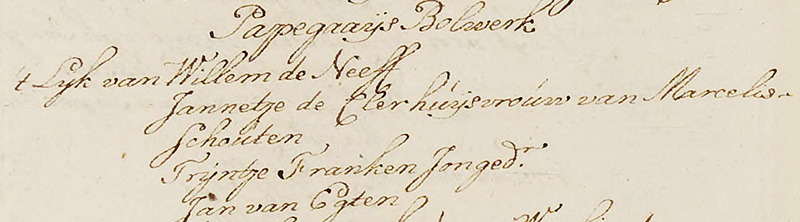 Pappegaaijs Bolwerk
't Lijk van Willem de Neeff
Jannetje de Eler huijsvrouw van Marcelis
Schouten
Trijntje Franken Jonged.r
Jan van Egten